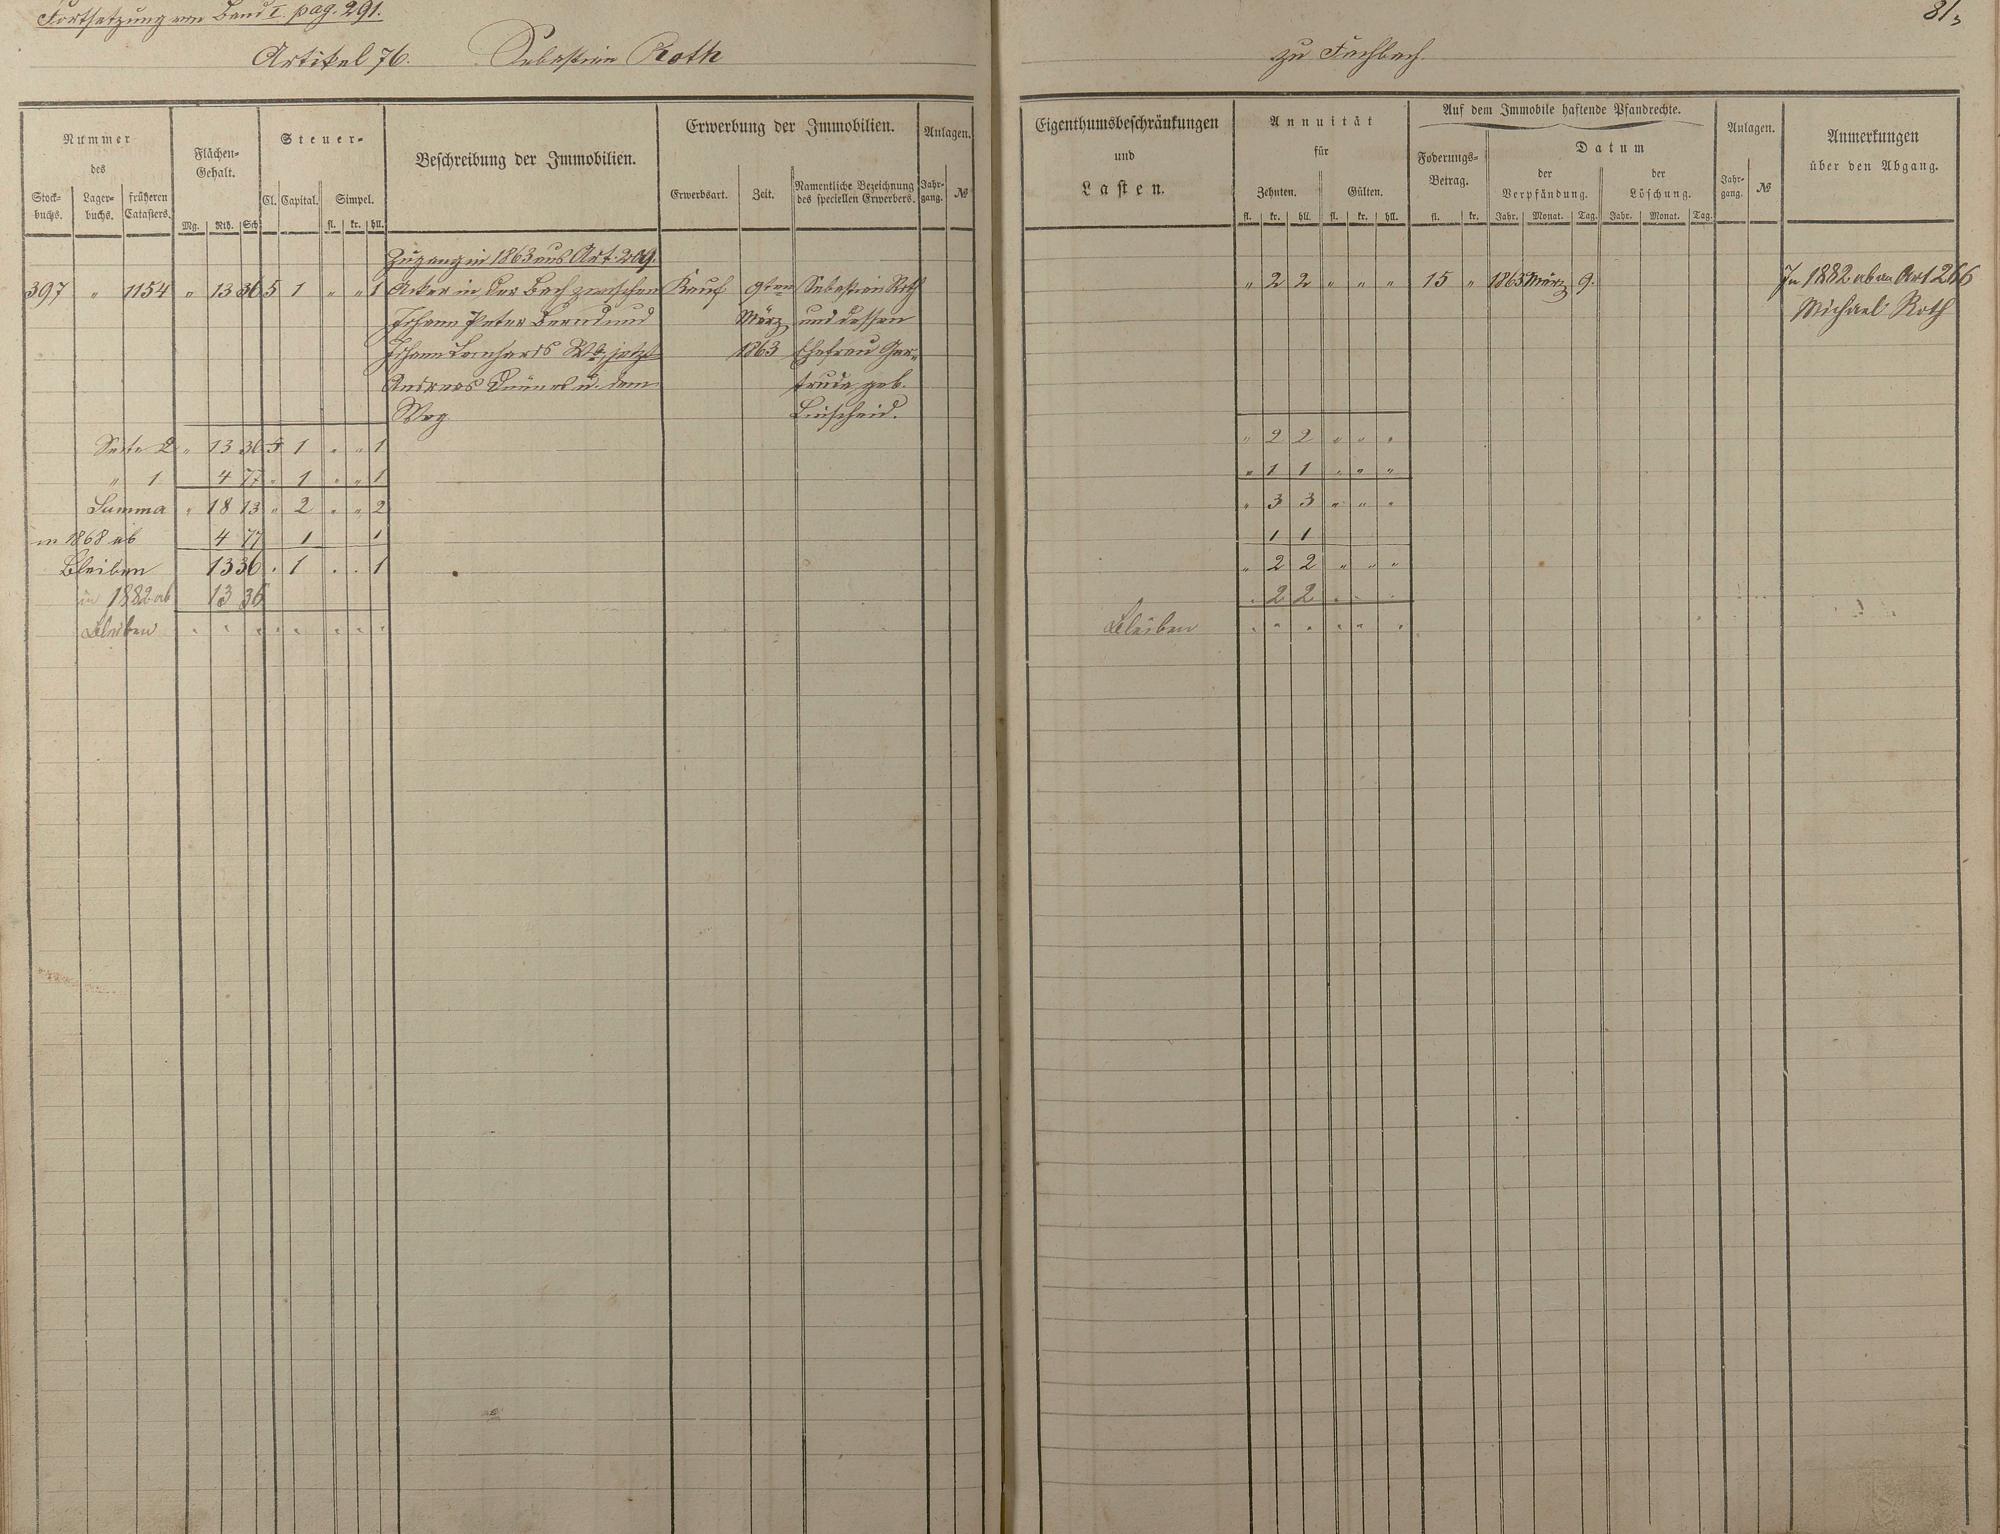 Fortsetzung von Band I. pag. 291.
Artikel 76. Sebastian Roth zu Fachbach.
Nummer
des
Stock-
buchs.
Lager-
buchs.
früheren
Catasters.
Flächen-
Gehalt.
Mg. Rth. Sch
Steuer-
Cl. Capital. Simpel.
fl. kr. hll.
Beschreibung der Immobilien.
Erwerbung der Immobilien.
Erwerbsart. Zeit.
Namentliche Bezeichnung
des speciellen Erwerbers.
Anlagen.
Jahr-
gang.
№
Zugang in 1863 aus Art. 209.
397 " 1154 " 13 36 5 1 " " 1 Acker in der Bach zwischen Kauf 9ten Sebastian Roth
Johann Peter Bernd und März und dessen
Johann Leonhards Wb. jetzt 1863 Ehefrau Ger-
Andreas u. dem trude, geb.
Weg Linscheid.
Seite 2 " 13 36 5 1 " " 1
" 1 4 77 " 1 " " 1
Summa " 18 13 " 2 " " 2
in 1868 ab 4 77 1 1
Bleiben 13 36 . 1 . . 1
in 1882 ab 13 36
Bleiben " " " " " " " "
81
Eigenthumsbeschränkungen
und
Lasten.
Annuität
für
Zehnten. Gülten.
fl. kr. hll. fl. kr. hll.
Auf dem Immobile haftende Pfandrechte.
Foderungs-
Betrag.
fl. kr.
Datum
der
Verpfändung.
Jahr. Monat. Tag.
der
Löschung.
Jahr. Monat. Tag.
Anlagen.
Jahr-
gang.
№
Anmerkungen
über den Abgang.
" 2 2 " " " 15 " 1863 März 9. In 1882 ab an Art 266
Michael Roth
" 2 2 " " "
" 1 1 " " "
" 3 3 " " "
1 1
" 2 2 " " "
" 2 2 " " "
Bleiben " " " " " "